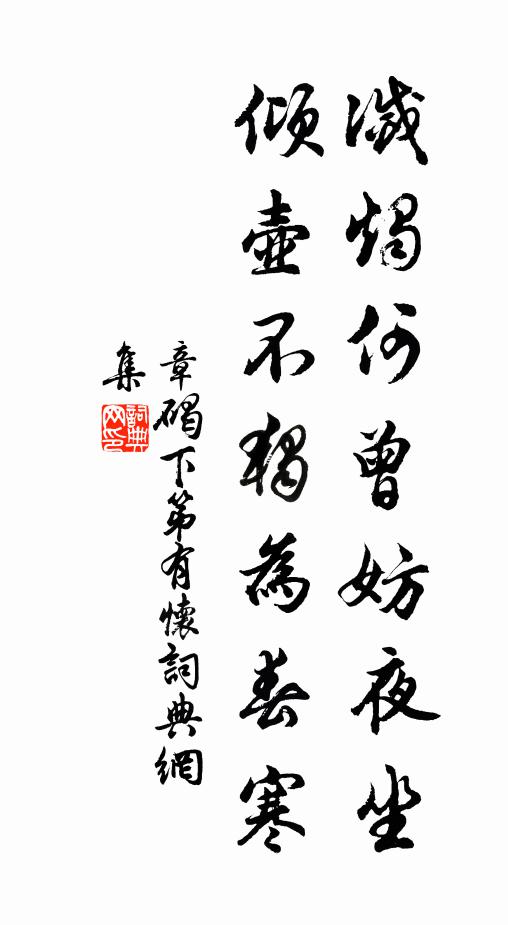 滅燭何曾妨夜坐
傾壺不獨為春寒
章碣下第有懷詞典網
集
詞典
网印